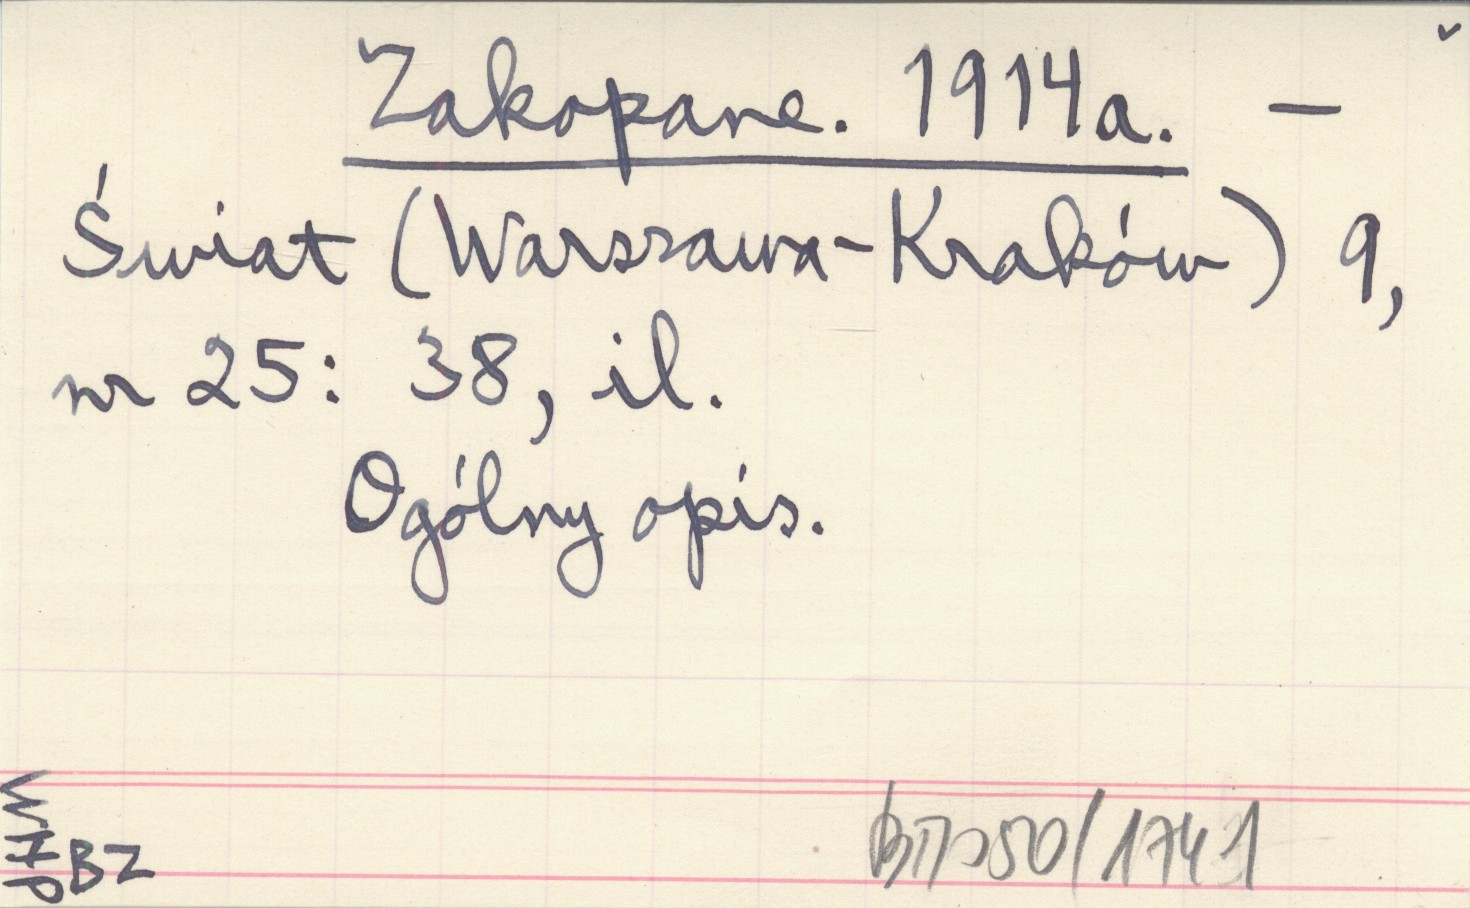 Zakopane. 1914a. —
Świat (Warszawa-Kraków) 9,
nr 25: 38, il.
Ogólny opis.
BZ